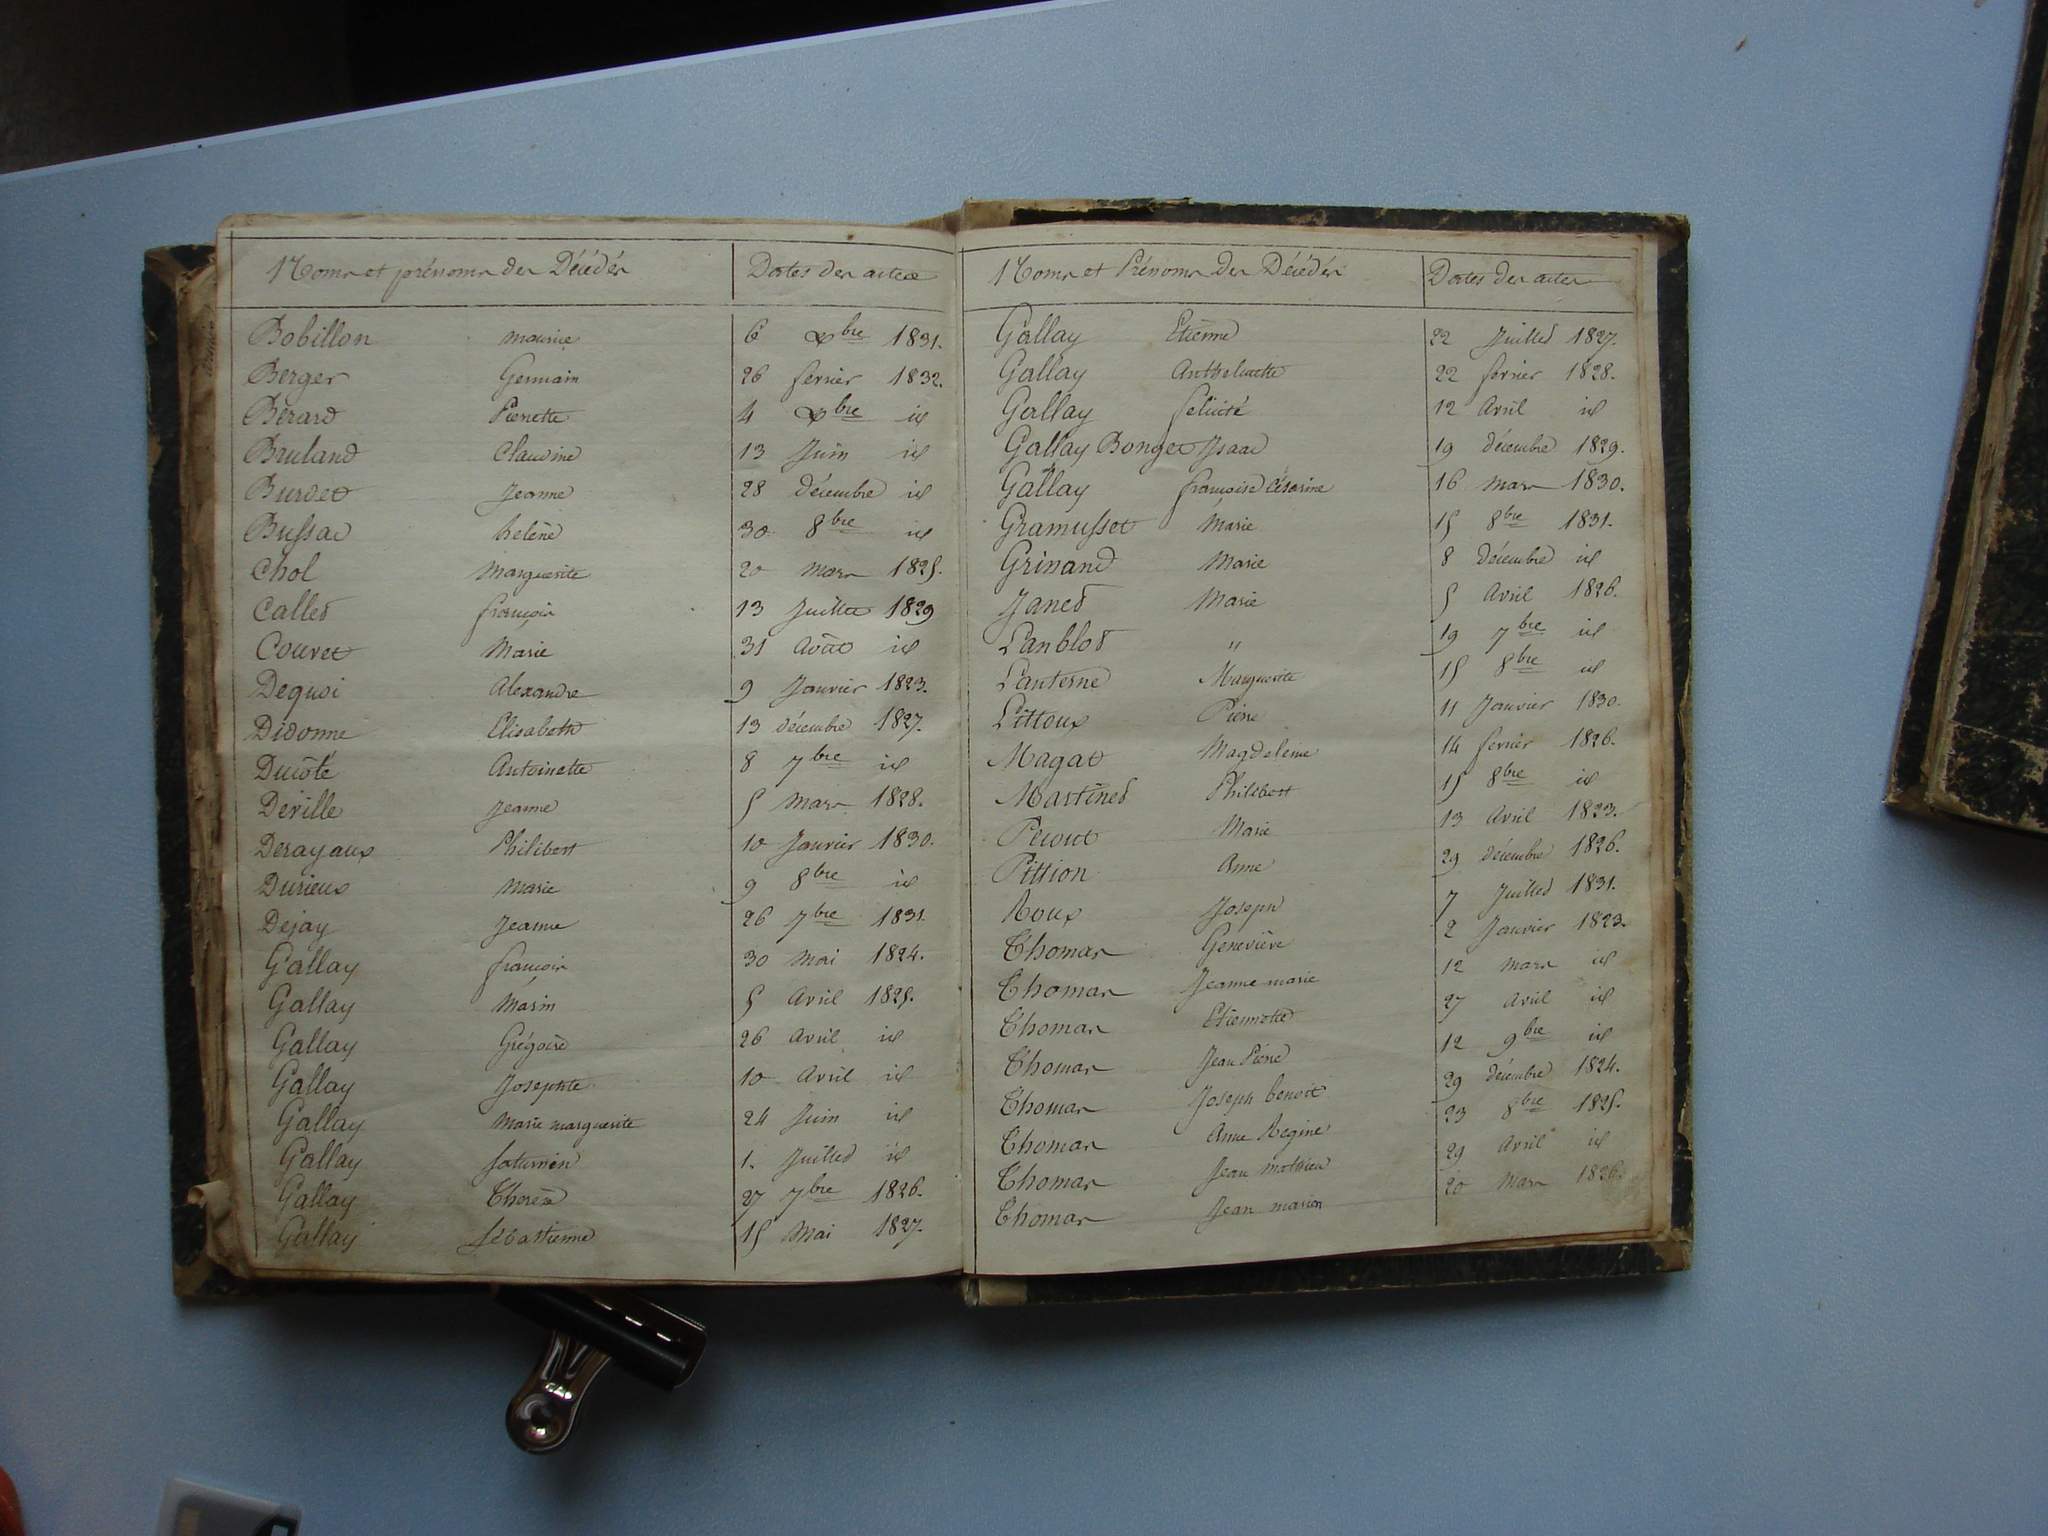 Noms et prénoms des Décédés Dates des actes
Bobillon maurice 6 Xbre 1831.
Berger Germain 26 fevrier 1832.
Berard Pierrette 4 Xbre id
Bruland Claudine 13 Juin id
Burdet Jeanne 28 décembre id
Bussac helène 30 8bre id
Chol Marguerite 20 mars 1825.
Callet françois 13 Juillet 1829
Couvet Marie 31 Août id
Dequoi Alexandre 9 Janvier 1823.
Didonne Elisabeth 13 décembre 1827.
Ducôté Antoinette 8 7bre id
Deville Jeanne 5 Mars 1828.
Derayaux Philibert 10 Janvier 1830.
Durieux Marie 9 8bre id
Dejay Jeanne 26 7bre 1831.
Gallay françois 30 Mai 1824.
Gallay Marin 5 Avril 1825.
Gallay Grégoire 26 Avril id
Gallay Josephte 10 Avril id
Gallay Marie marguerite 24 Juin id
Gallay Saturnin 1. Juillet id
Gallay Therèse 27 7bre 1826.
Gallay Sébastienne 15 Mai 1827.
Noms et Prénoms des Décédés Dates des actes
Gallay Etienne 22 Juillet 1827.
Gallay Anthelmette 22 fevrier 1828.
Gallay felicité 12 Avril id
Gallay Bonget Isaac 19 décembre 1829.
Gallay françoise césarine 16 mars 1830.
Gramusset Marie 15 8bre 1831.
Grinand Marie 8 décembre id
Janet Marie 5 Avril 1826.
Lanblot " 19 7bre id
Lanterne Marguerite 15 8bre id
Littoux Pierre 11 Janvier 1830.
Magat Magdeleine 14 fevrier 1826.
Martinet Philibert 15 8bre id
Pecout Marie 13 Avril 1823.
Pittion Anne 29 décembre 1826.
Roux Joseph 7 Juillet 1831.
Thomas Geneviève 2 Janvier 1823.
Thomas Jeanne marie 12 mars id
Thomas Etiennette 27 Avril id
Thomas Jean Pierre 12 9bre id
Thomas Joseph benoit 29 décembre 1824.
Thomas Anne Regine 23 8bre 1825.
Thomas Jean mathieu 29 Avril id
Thomas Jean marion 20 Mars 1826.